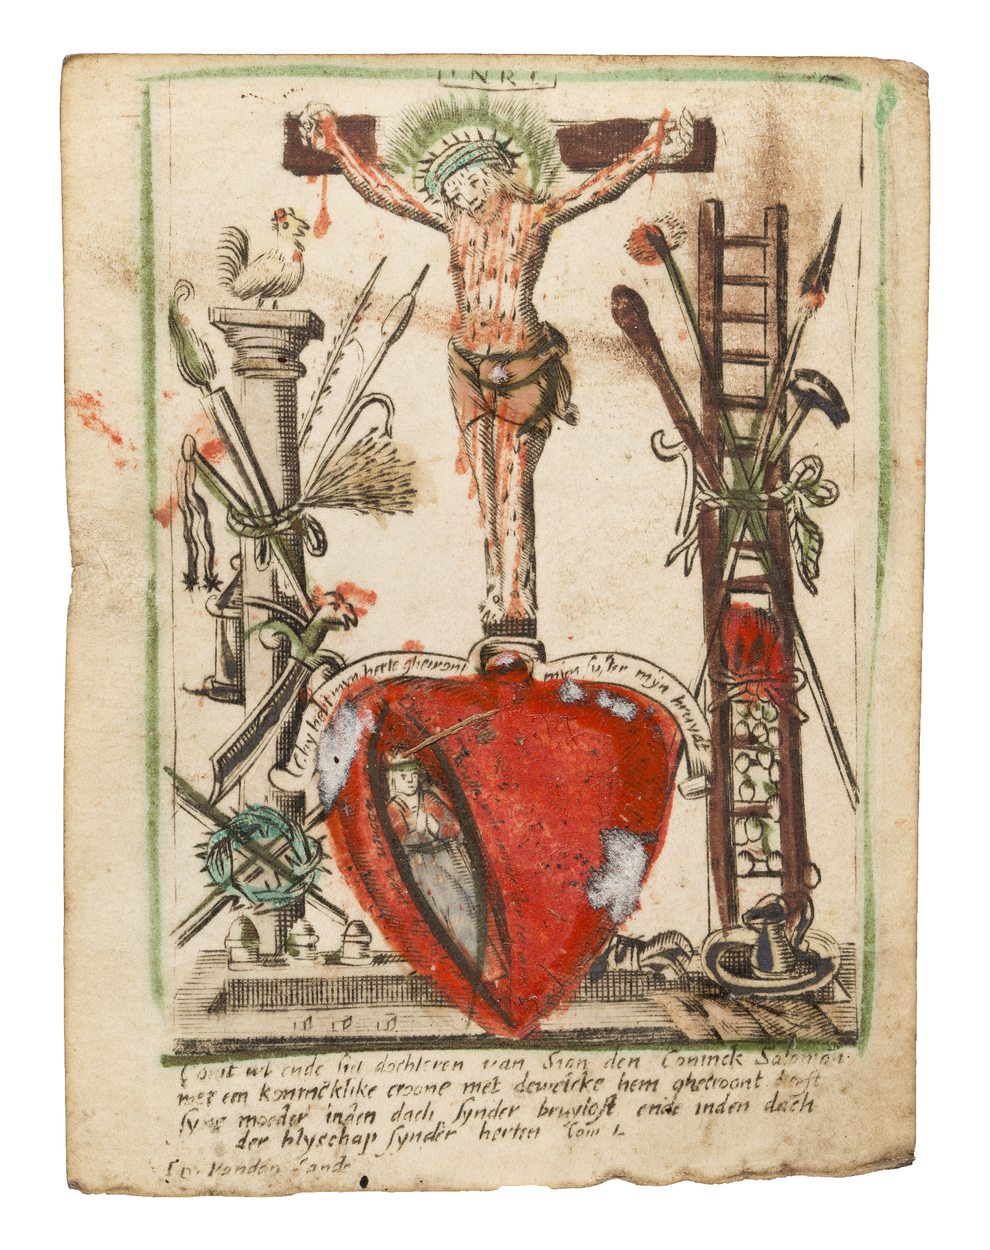 INRI
Ghy hebt myn herte ghewont
myn suster myn bruydt
Comt wt ende siet dochteren van Sion den Coninck Salomon
met een konincklike croone met dewelcke hem ghecroont heeft
syne moeder inden dach synder bruyloft ende inden dach
der blyschap synder herten
vanden Sande